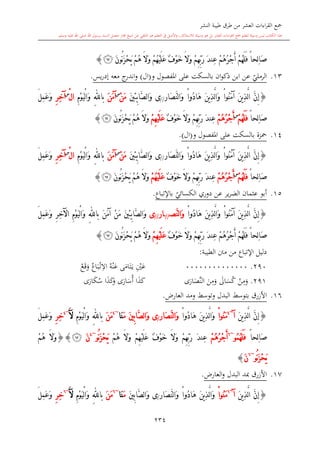 جمع القراءات العشر من طرق طيبة النشر
صَالِحاً فَلَهُمْ أَجْرُهُمْ عِندَ رَبِّهِمْ وَلَا خَوْفٌ عَلَيْهِمْ وَلَا هُمْ يَحْزَنُونَ ﴾
١٣. الرمليّ عن ابن ذكوان بالسكت على المفصول و(ال) واندرج معه إدريس.
﴿ إِنَّ الَّذِينَ آمَنُواْ وَالَّذِينَ هَادُواْ وَالنَّصَارَى وَالصَّابِئِينَ مَنْ آمَنَ بِاللهِ وَالْيَوْمِ الْآخِرِ وَعَمِلَ
صَالِحاً فَلَهُمْ أَجْرُهُمْ عِندَ رَبِّهِمْ وَلَا خَوْفٌ عَلَيْهِمْ وَلَا هُمْ يَحْزَنُونَ ﴾
١٤. حمزة بالسكت على المفصول و(ال).
﴿ إِنَّ الَّذِينَ آمَنُواْ وَالَّذِينَ هَادُواْ وَالنَّصَارَى وَالصَّابِئِينَ مَنْ آمَنَ بِاللهِ وَالْيَوْمِ الْآخِرِ وَعَمِلَ
صَالِحاً فَلَهُمْ أَجْرُهُمْ عِندَ رَبِّهِمْ وَلَا خَوْفٌ عَلَيْهُمْ وَلَا هُمْ يَحْزَنُونَ ﴾
١٥. أبو عثمان الضرير عن دوري الكسائيّ بالإتباع.
﴿ إِنَّ الَّذِينَ آمَنُواْ وَالَّذِينَ هَادُواْ وَالنَّصَارَى وَالصَّابِئِينَ مَنْ آمَنَ بِاللهِ وَالْيَوْمِ الْآخِرِ وَعَمِلَ
صَالِحاً فَلَهُمْ أَجْرُهُمْ عِندَ رَبِّهِمْ وَلَا خَوْفٌ عَلَيْهِمْ وَلَا هُمْ يَحْزَنُونَ ﴾
دليل الإتباع من متن الطيبة:
٢٩٠. .............. عَيْنَ يَتَامَى عَنْهُ الِاتْبَاعُ وَقَعْ
٢٩١. وَمِنْ كُسَالَى وَمِنَ النَّصَارَى كَذَا أُسَارَى وَكَذَا سُكَارَى
١٦. الأزرق بتوسط البدل وتوسط ومد العارض.
﴿ إِنَّ الَّذِينَ آمَنُواْ وَالَّذِينَ هَادُواْ وَالنَّصَارَى وَالصَّابِينَ مَنَ امَنَ بِاللهِ وَالْيَوْمِ الَاخِرِ وَعَمِلَ
صَالِحاً فَلَهُمُ أَجْرُهُمْ عِندَ رَبِّهِمْ وَلَا خَوْفٌ عَلَيْهِمْ وَلَا هُمْ يَحْزَنُونَ ﴾ ﴿ وَلَا هُمْ
يَحْزَنُونَ ﴾
١٧. الأزرق بمد البدل والعارض.
﴿ إِنَّ الَّذِينَ آمَنُواْ وَالَّذِينَ هَادُواْ وَالنَّصَارَى وَالصَّابِينَ مَنَ امَنَ بِاللهِ وَالْيَوْمِ الَاخِرِ وَعَمِلَ
٢٣٤